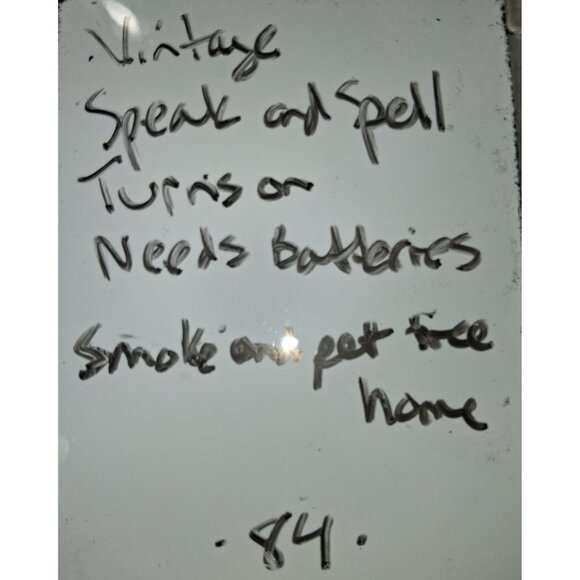 Vintage
Speak and Spell
Turns on
Needs batteries
Smoke and pet free
home
. 84 .